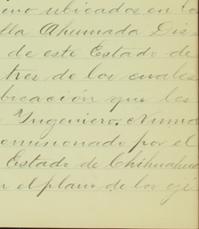 ubicados en
lla Ahumada Dis
de este Estado de
tres de los cuales
bicación que les
Ingeniero.
omisionado por el
Estado de Chihuahua
n el plano de los